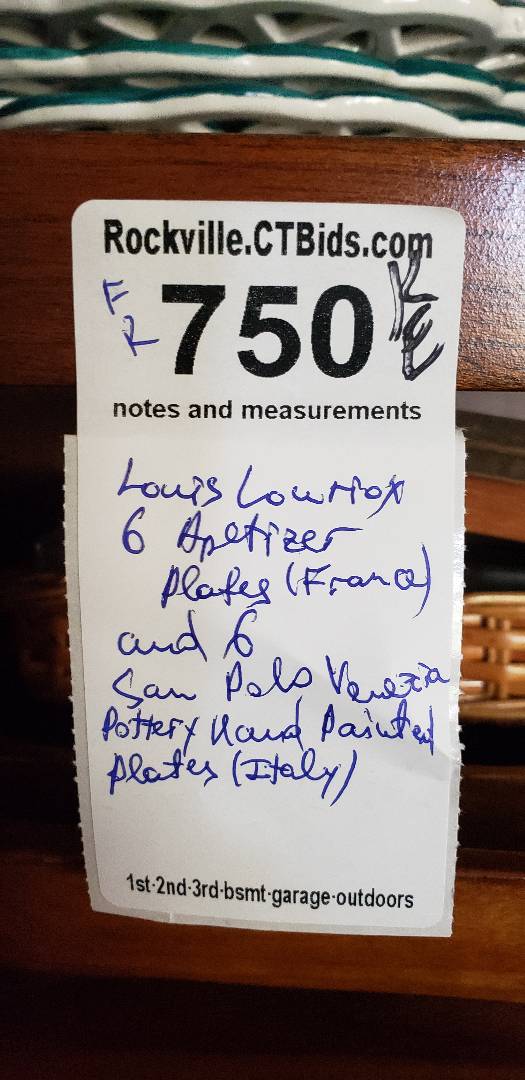 Rockville.CTBids.com
FR 750 KE
notes and measurements
Louis Louriox
6 Apetizer
Plates (France)
and 6
San Polo Venezia
Pottery Hand Painted
Plates (Italy)
1st-2nd-3rd-bsmt-garage-outdoors